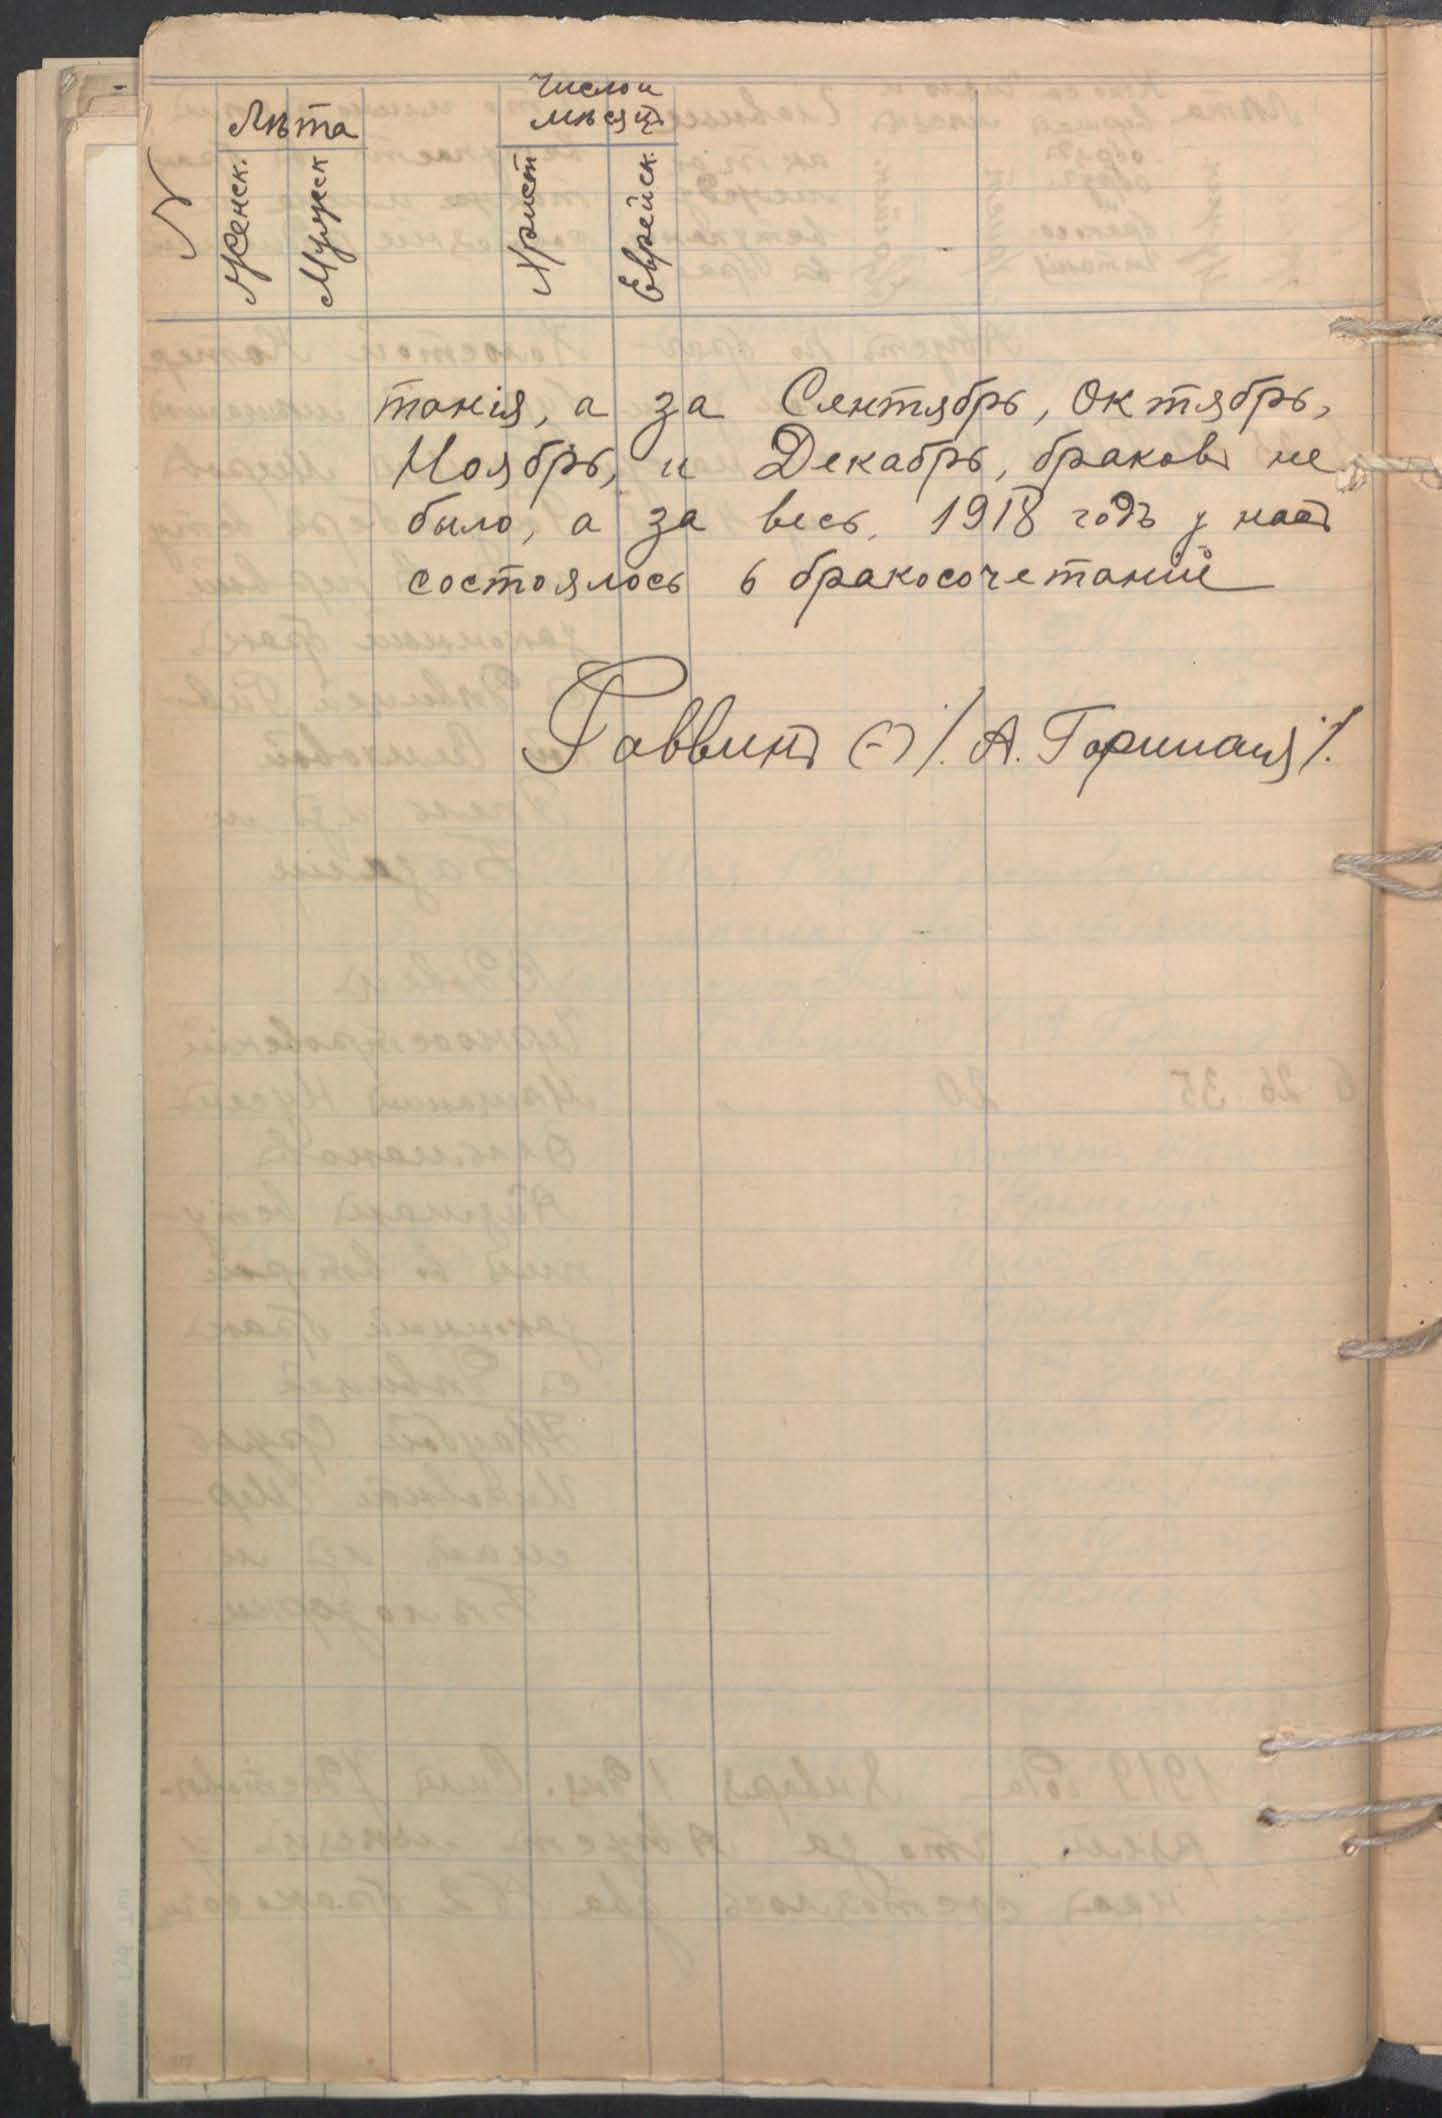 N
Лѣта
Женск.
Мужск
Число и
мѣсяцъ
Христ
Еврейск.
танія, а за Сентябрь, Октябрь,
Ноябрь, и Декабрь, браковъ не
было, а за весь 1918 годъ у насъ
состоялось 6 бракосочетаній
Раввинъ (-) /. А. /.